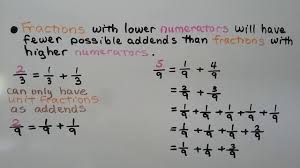 • Fractions with lower numerators will have
fewer possible addends than fractions with
higher numerators.
2/3 = 1/3 + 1/3
can only have
unit fractions
as addends
2/9 = 1/9 + 1/9
5/9 = 1/9 + 4/9
= 2/9 + 3/9
= 1/9 + 1/9 + 1/9 + 1/9 + 1/9
= 1/9 + 1/9 + 1/9 + 2/9
= 1/9 + 1/9 + 3/9